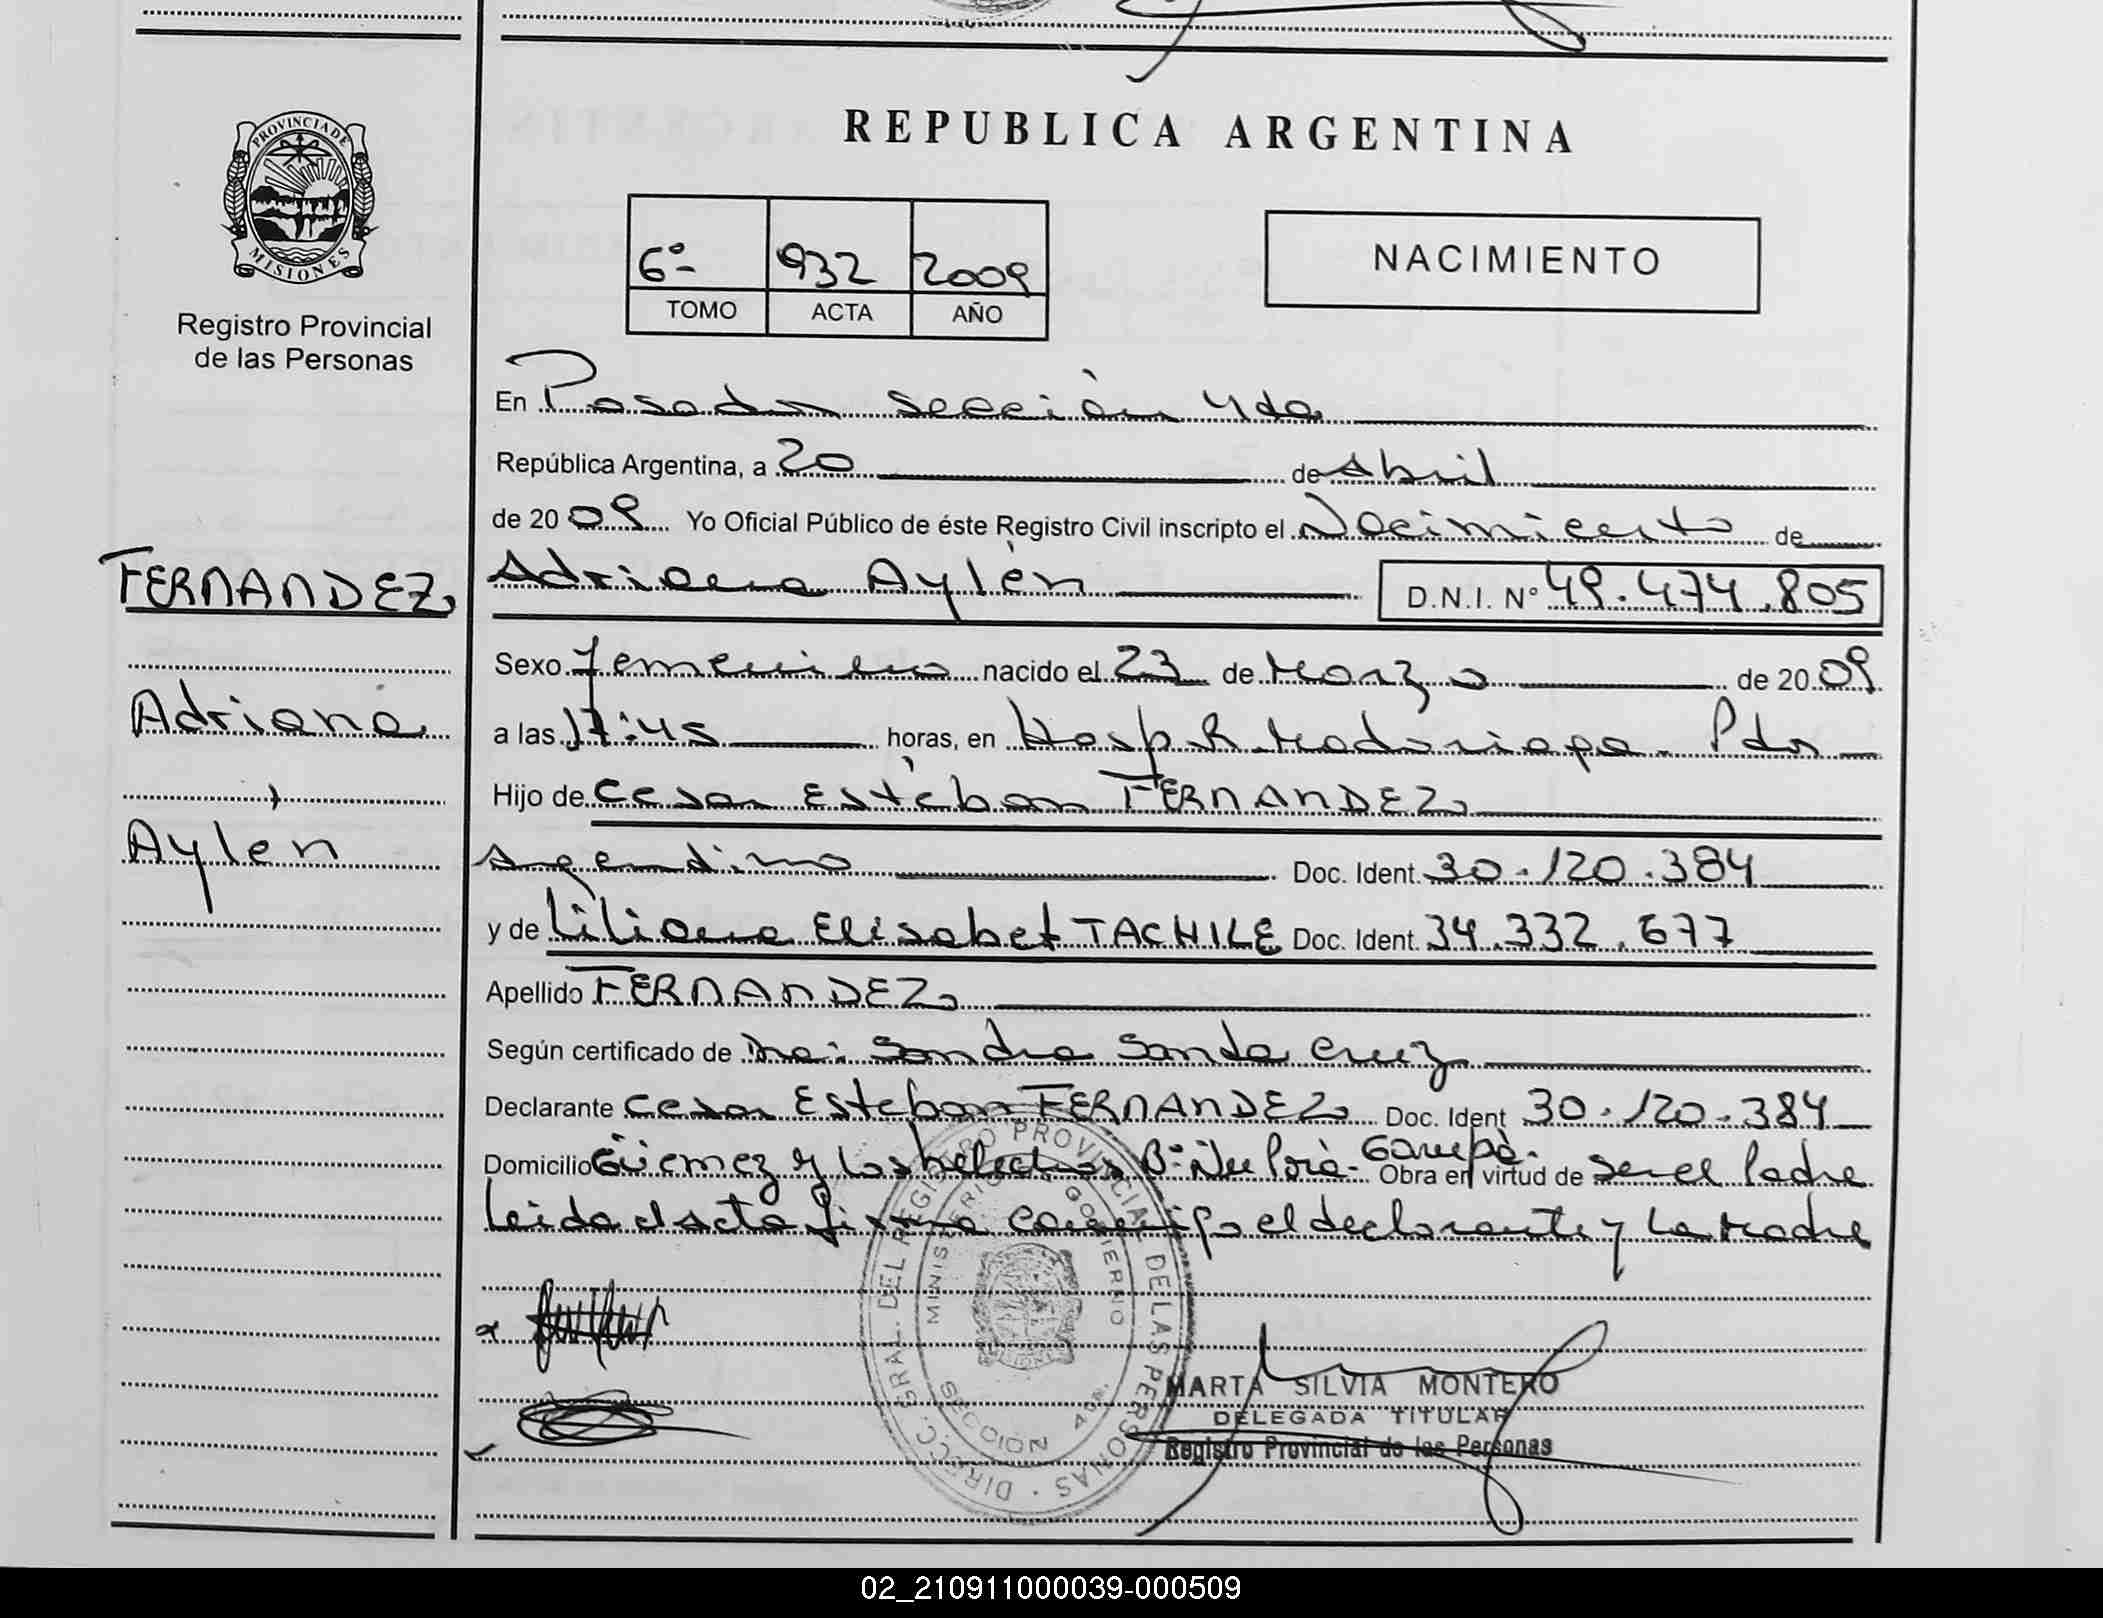 PROVINCIA DE
MISIONES
Registro Provincial
de las Personas
FERNANDEZ,
Adriana
Aylén
REPUBLICA ARGENTINA
6º 932 2009
TOMO ACTA AÑO
NACIMIENTO
En Posadas sección 4da
República Argentina, a 20 de Abril
de 2009 Yo Oficial Público de éste Registro Civil inscripto el Nacimiento de
Adriana Aylén D.N.I. Nº 49.474.805
Sexo femenino nacido el 23 de Marzo de 2009
a las 17:45 horas, en Hosp. R. Madariaga. Pdas
Hijo de Cesar Estéban FERNANDEZ
Argentino Doc. Ident. 30.120.384
y de Liliana Elisabet TACHILE Doc. Ident. 34.332.677
Apellido FERNANDEZ
Según certificado de Dra: Sandra Santa Cruz
Declarante Cesar Esteban FERNANDEZ Doc. Ident 30.120.384
Domicilio Güemez y los helechos Bº Ñu Porá- Garupá. Obra en virtud de ser el Padre
Leida el Acta firma conmigo el declarante y la Madre
DIRECC. GRAL. DEL REGISTRO PROVINCIAL DE LAS PERSONAS
MINISTERIO DE GOBIERNO
SECCION 4da.
MARTA SILVIA MONTERO
DELEGADA TITULAR
Registro Provincial de las Personas
02_210911000039-000509